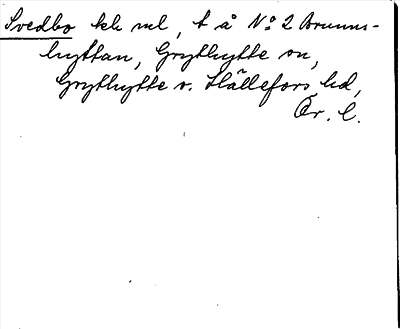 Svedbo teh rel, t å No 2 Brunns-
hyttan, Grythytte sn,
Grythytte o. Hällefors hd,
Ör. l.